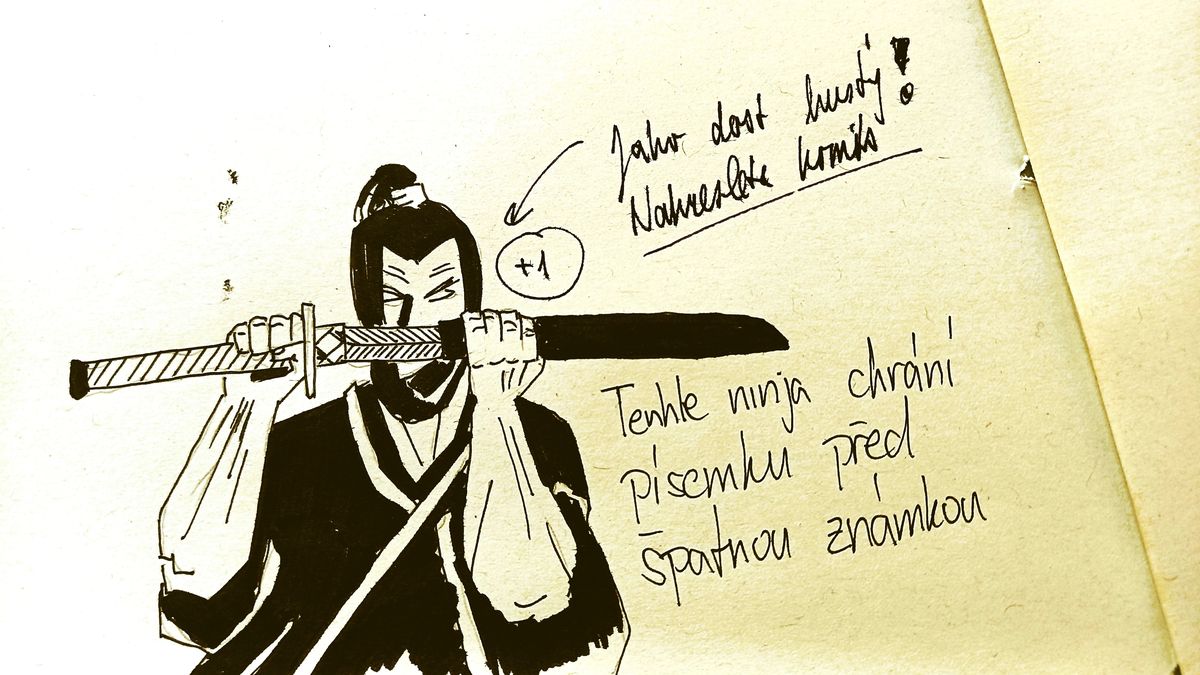 Jako dost hustý!
Nakreslete komiks
+1
Tenhle ninja chrání
písemku před
špatnou známkou